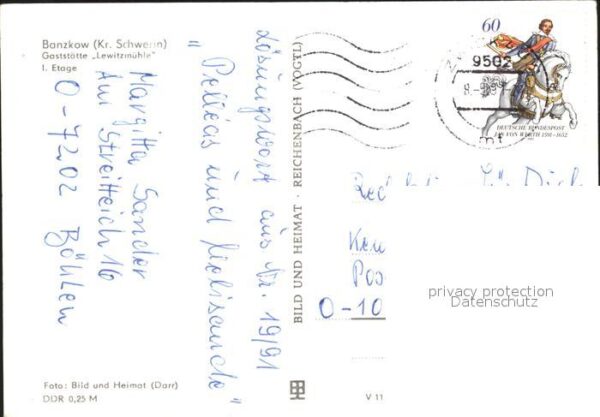 Banzkow (Kr. Schwerin)
Gaststätte „Lewitzmühle"
1. Etage
Margitta Sander
Am Streitteich 16
O-7202 Böhlen
Lösungswort aus Nr. 19/91
„Pelléas und Melisande"
Foto: Bild und Heimat (Darr)
DDR 0,25 M
BILD UND HEIMAT · REICHENBACH (VOGTL)
V 11
60
9502
DEUTSCHE BUNDESPOST
JAN VON WERTH 1591-1652
Red
Pos
O-10
privacy protection
Datenschutz